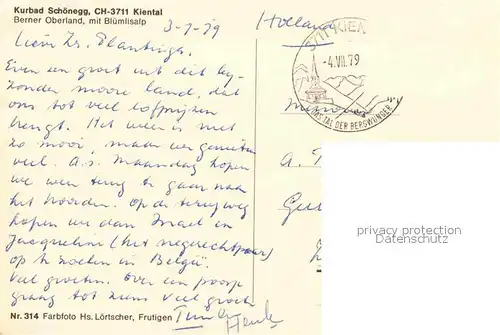 Kurbad Schönegg, CH-3711 Kiental
Berner Oberland, mit Blümlisalp
3-7-79
Holland
3711 KIEN
-4.VII.79
DAS TAL DER BERGWUNDER
Even een groet uit dit by-
zonder mooie land, dat
ons tot veel lofprijzen
brengt. Het weer is niet
zo mooi, maar we genieten
veel. A.s. Maandag hopen
we weer terug te gaan naar
het Noorden. Op de terugweg
hopen we dan Israel en
Jacqueline (het
op te zoeken in België.
Veel groeten. Over een
graag tot ziens veel groet
Tini
Henk
A.
privacy protection
Datenschutz
Nr. 314 Farbfoto Hs. Lörtscher, Frutigen